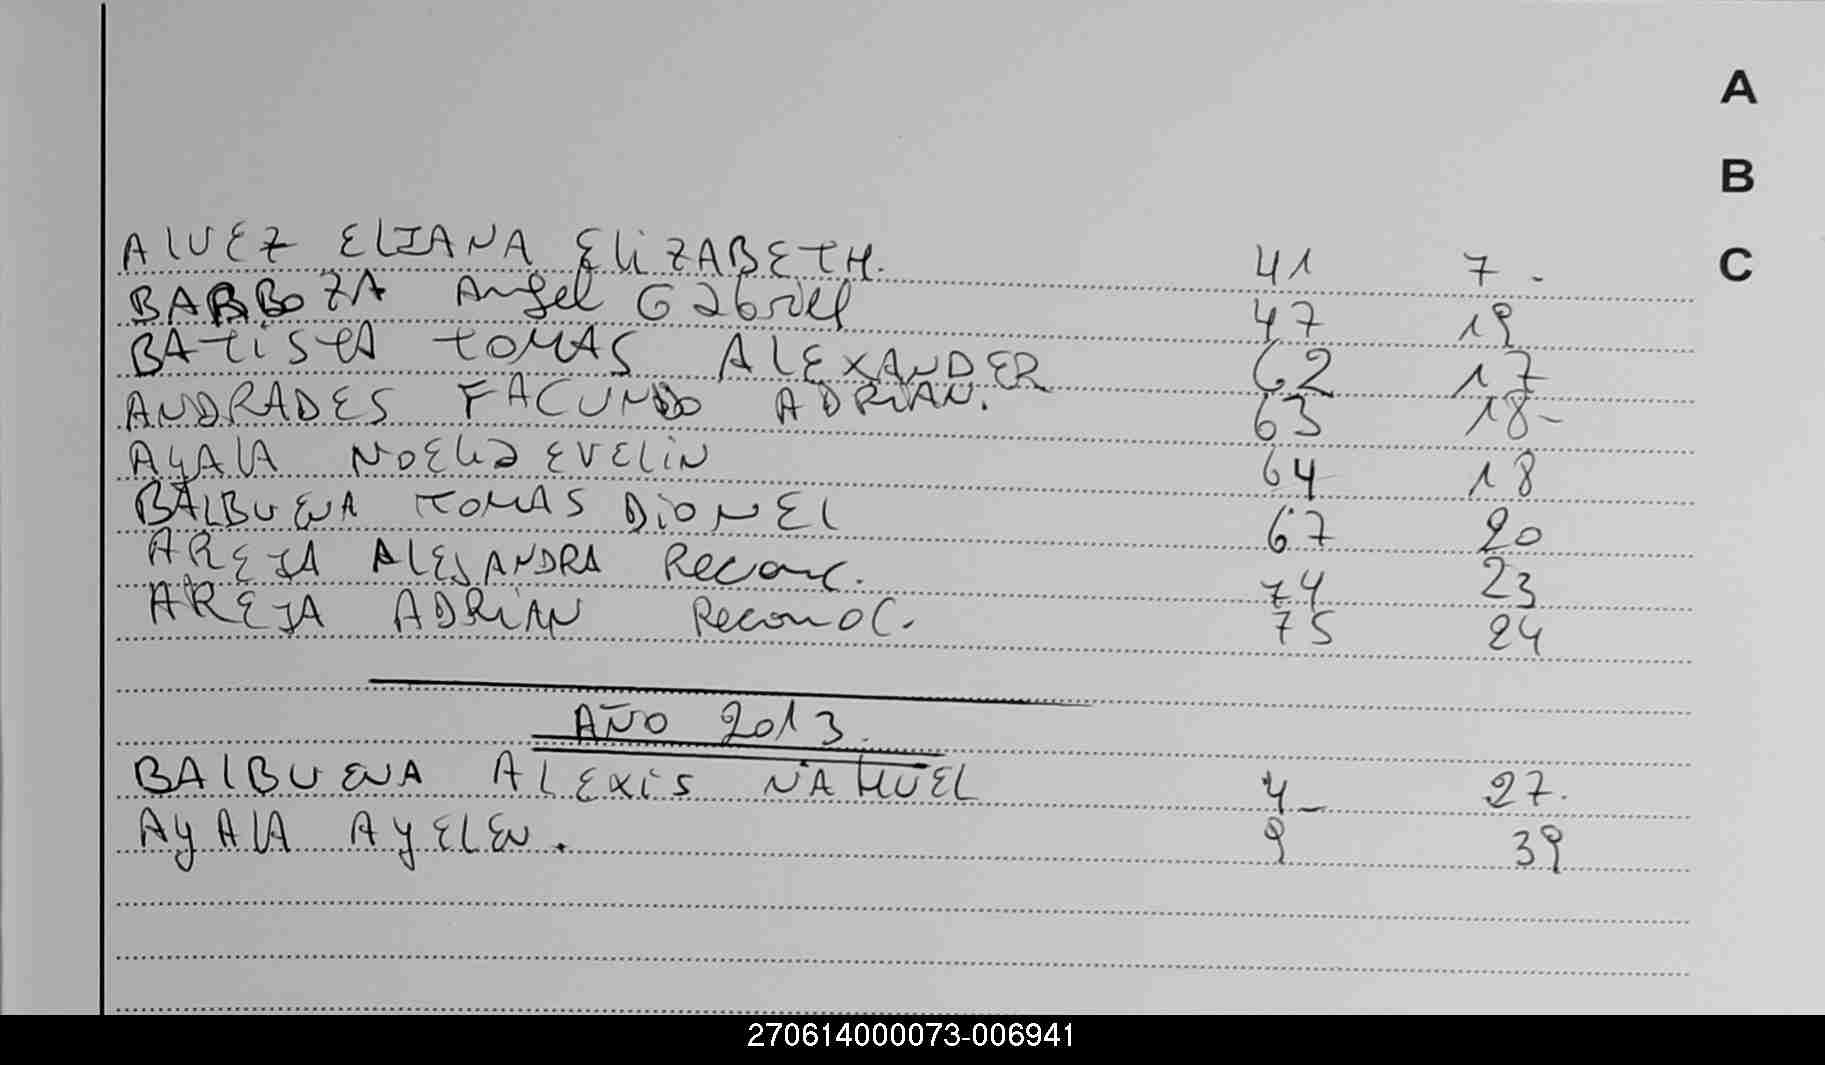 A
B
C
ALVEZ ELIANA ELIZABETH. 41 7.
BARBOZA Angel Gabriel 47 19
BATISTA TOMAS ALEXANDER 62 17
ANDRADES FACUNDO ADRIAN. 63 18-
AYALA NOELIA EVELIN 64 18
BALBUENA TOMAS DIONEL 67 20
AREJA ALEJANDRA Reconc. 74 23
AREJA ADRIAN Reconoc. 75 24
AÑO 2013.
BALBUENA ALEXIS NAHUEL 4- 27.
AYALA AYELEN. 9 39
270614000073-006941